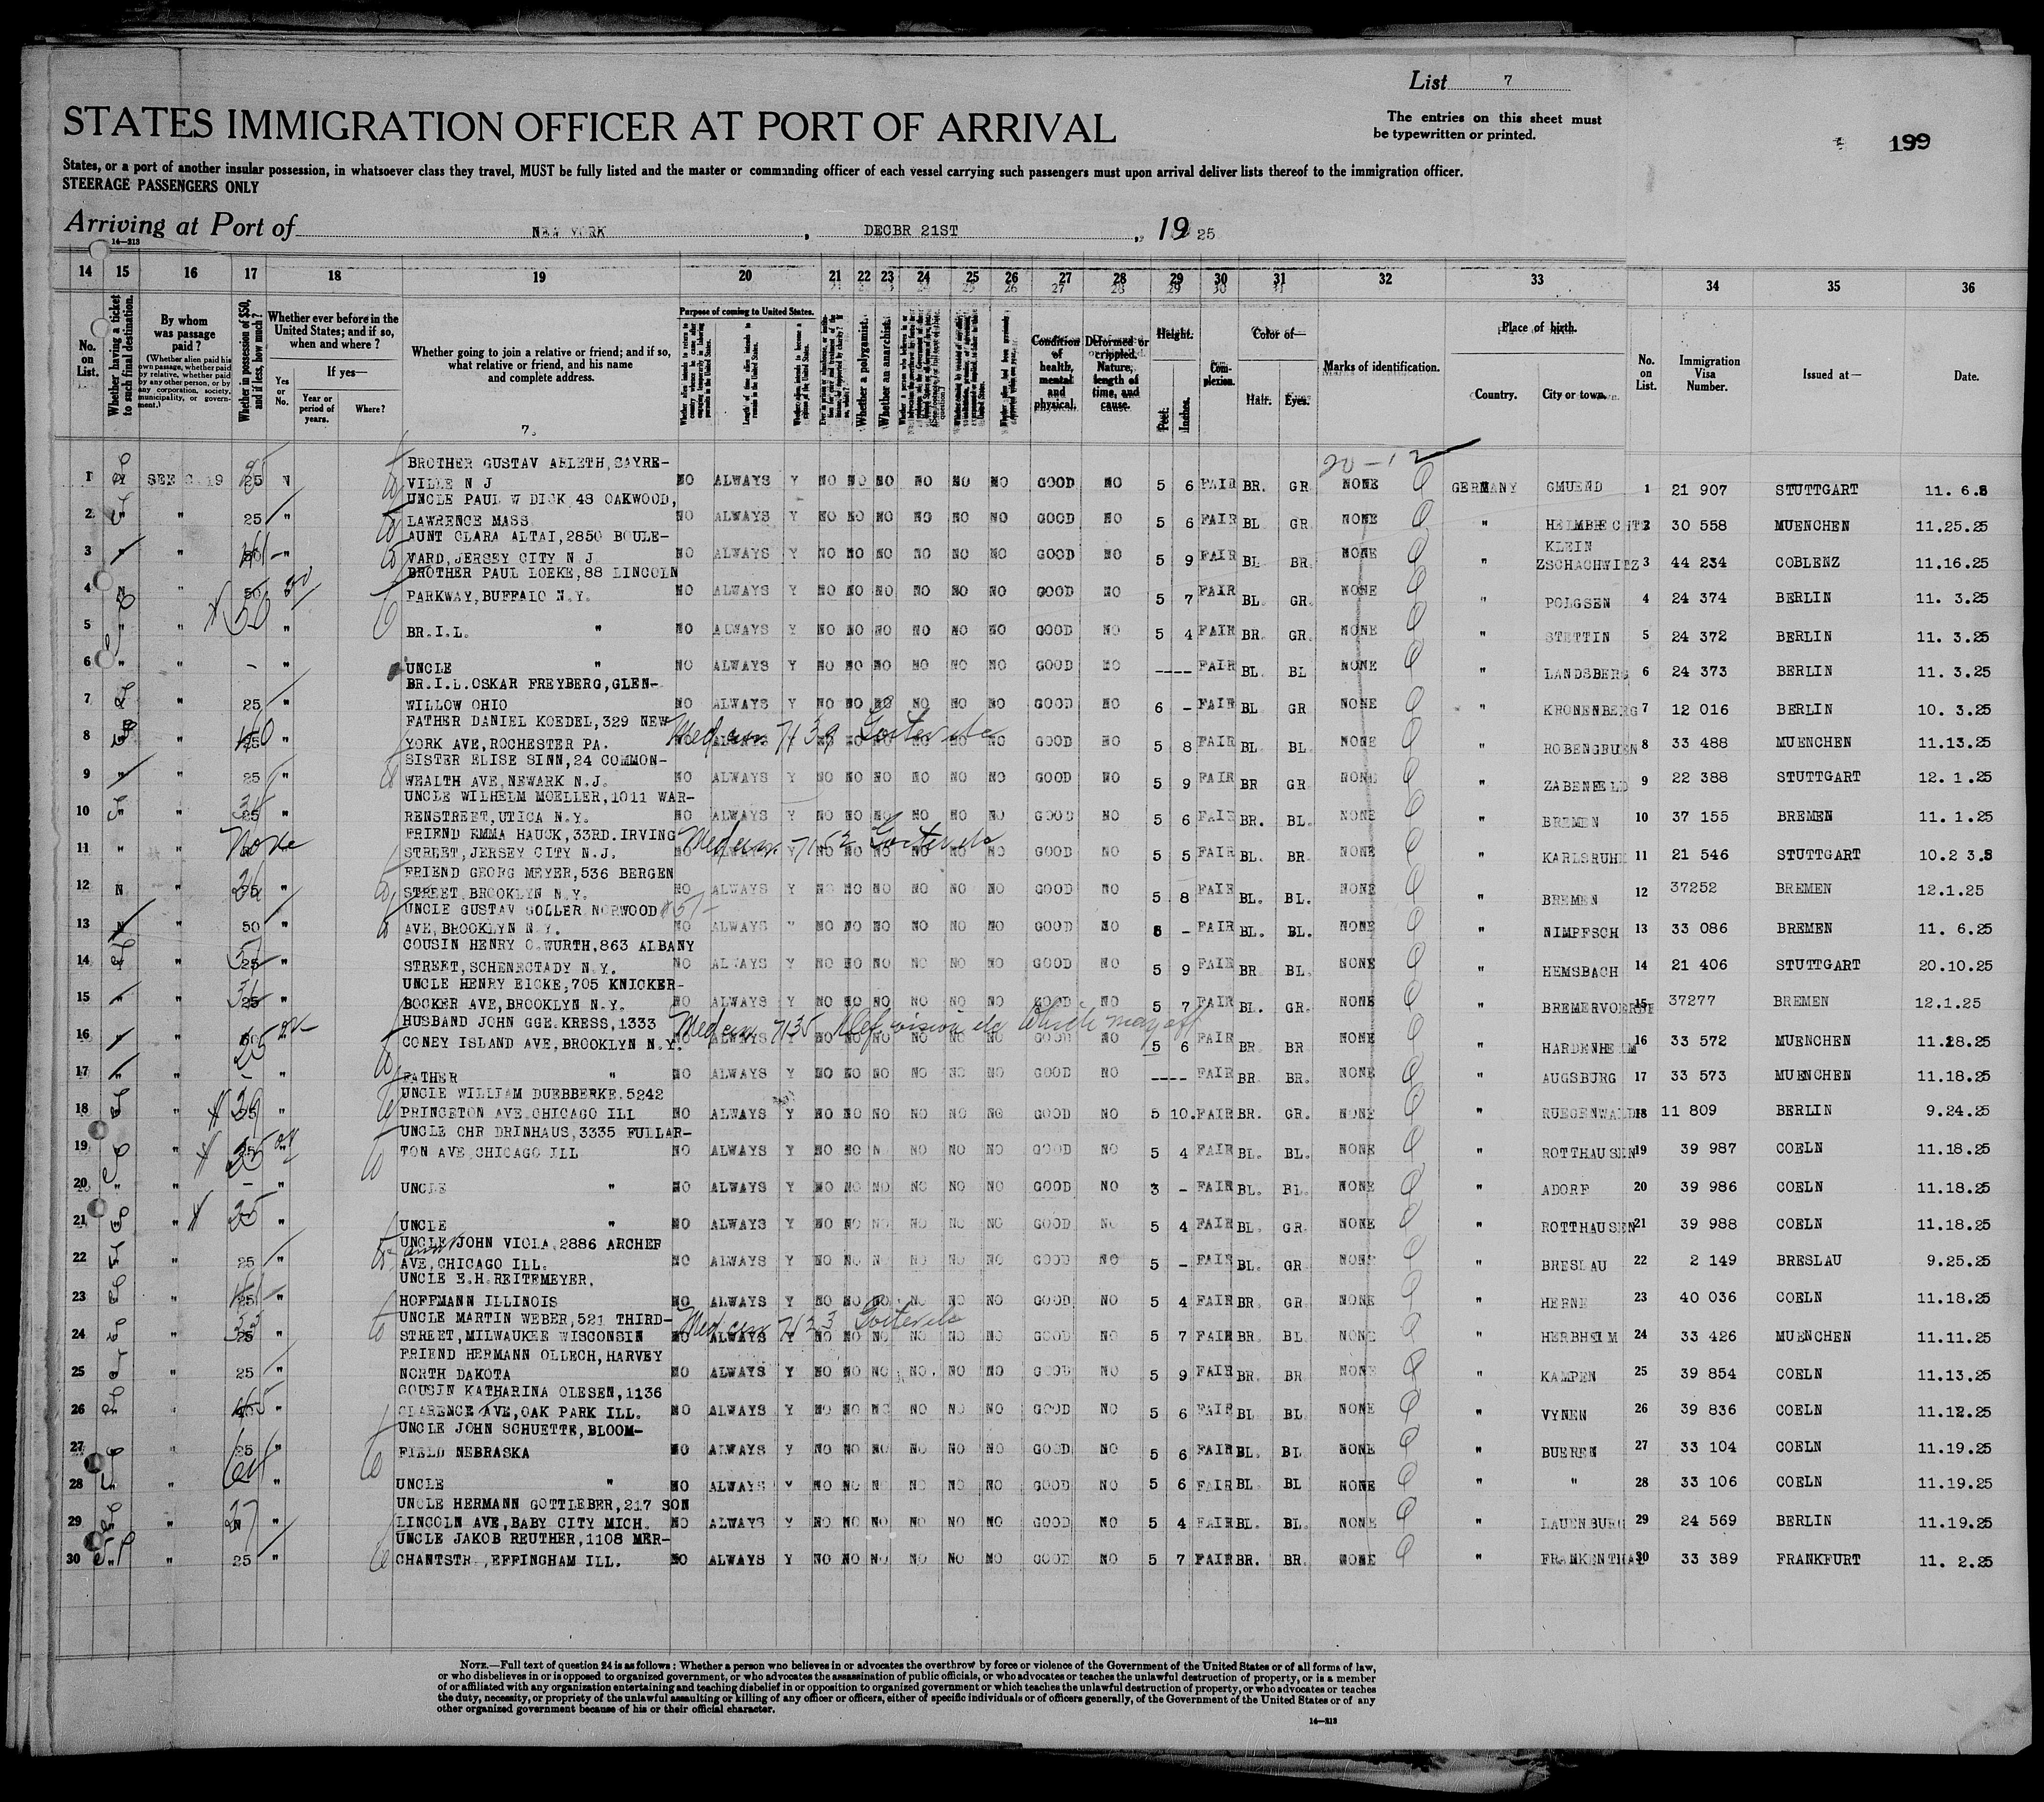 List 7
STATES IMMIGRATION OFFICER AT PORT OF ARRIVAL
The entries on this sheet must
be typewritten or printed.
199
States, or a port of another insular possession, in whatsoever class they travel, MUST be fully listed and the master or commanding officer of each vessel carrying such passengers must upon arrival deliver lists thereof to the immigration officer.
STEERAGE PASSENGERS ONLY
Arriving at Port of NEW YORK, DECBR 21ST, 19 25
14—213
14 15 16 17 18 19 20 21 22 23 24 25 26 27 28 29 30 31 32 33 34 35 36
No. on List.
Whether having a ticket to such final destination.
By whom was passage paid?
(Whether alien paid his own passage, whether paid by relative, whether paid by any other person, or by any corporation, society, municipality, or government.)
Whether in possession of $50, and if less, how much?
Whether ever before in the United States; and if so, when and where?
Yes or No.
If yes—
Year or period of years.
Where?
Whether going to join a relative or friend; and if so, what relative or friend, and his name and complete address.
7.
Purpose of coming to United States.
Whether a polygamist.
Whether an anarchist.
Condition of health, mental and physical.
Deformed or crippled. Nature, length of time, and cause.
Height.
Feet. Inches.
Complexion.
Color of—
Hair. Eyes.
Marks of identification.
Place of birth.
Country. City or town.
No. on List.
Immigration Visa Number.
Issued at—
Date.
20-12
BROTHER GUSTAV ABLETH, SAYRE-
1 SEE C. 19 25 N VILLE N J NO ALWAYS Y NO NO NO NO NO NO GOOD NO 5 6 FAIR BR. GR. NONE GERMANY GMUEND 1 21 907 STUTTGART 11. 6.
UNCLE PAUL W DICK 48 OAKWOOD,
2 " " 25 " LAWRENCE MASS NO ALWAYS Y NO NO NO NO NO NO GOOD NO 5 6 FAIR BL GR. NONE " HELMBRECHTS 2 30 558 MUENCHEN 11.25.25
AUNT CLARA ALTAI, 2850 BOULE-
3 " " " VARD, JERSEY CITY N J NO ALWAYS Y NO NO NO NO NO NO GOOD NO 5 9 FAIR BL BR. NONE " KLEIN ZSCHACHWITZ 3 44 234 COBLENZ 11.16.25
BROTHER PAUL LOEKE, 88 LINCOLN
4 N " 50 " PARKWAY, BUFFALO N.Y. NO ALWAYS Y NO NO NO NO NO NO GOOD NO 5 7 FAIR BL. GR. NONE " POLGSEN 4 24 374 BERLIN 11. 3.25
5 " " 50 " BR.I.L. " NO ALWAYS Y NO NO NO NO NO NO GOOD NO 5 4 FAIR BR. GR. NONE " STETTIN 5 24 372 BERLIN 11. 3.25
6 " " - " UNCLE " NO ALWAYS Y NO NO NO NO NO NO GOOD NO ---- FAIR BL. BL NONE " LANDSBERG 6 24 373 BERLIN 11. 3.25
BR.I.L. OSKAR FREYBERG, GLEN-
7 " 25 " WILLOW OHIO NO ALWAYS Y NO NO NO NO NO NO GOOD NO 6 - FAIR BL GR NONE " KRONENBERG 7 12 016 BERLIN 10. 3.25
FATHER DANIEL KOEDEL, 329 NEW
8 " " YORK AVE, ROCHESTER PA. Med cer 7139 Goiter etc GOOD NO 5 8 FAIR BL. BL. NONE " ROBENGRUEN 8 33 488 MUENCHEN 11.13.25
SISTER ELISE SINN, 24 COMMON-
9 " " 25 " WEALTH AVE, NEWARK N.J. NO ALWAYS Y NO NO NO NO NO NO GOOD NO 5 9 FAIR BR GR. NONE " ZABENFELD 9 22 388 STUTTGART 12. 1.25
UNCLE WILHELM MOELLER, 1011 WAR-
10 " 25 " RENSTREET, UTICA N.Y. NO ALWAYS Y NO NO NO NO NO NO GOOD NO 5 6 FAIR BR. BL. NONE " BREMEN 10 37 155 BREMEN 11. 1.25
FRIEND EMMA HAUCK, 33RD. IRVING
11 " " None " STREET, JERSEY CITY N.J. Med cer 7152 Goiter etc GOOD NO 5 5 FAIR BL. BR. NONE " KARLSRUHE 11 21 546 STUTTGART
FRIEND GEORG MEYER, 536 BERGEN
12 N " 25 " STREET, BROOKLYN N.Y. NO ALWAYS Y NO NO NO NO NO NO GOOD NO 5 8 FAIR BL. BL. NONE " BREMEN 12 37252 BREMEN 12.1.25
UNCLE GUSTAV GOLLER NORWOOD
13 N " 50 " AVE, BROOKLYN N.Y. NO ALWAYS " NO NO NO NO NO NO GOOD NO - FAIR BL. BL. NONE " NIMPFSCH 13 33 086 BREMEN 11. 6.25
COUSIN HENRY C. WURTH, 863 ALBANY
14 " 25 " STREET, SCHENECTADY N.Y. NO ALWAYS Y NO NO NO NO NO NO GOOD NO 5 9 FAIR BR BL. NONE " HEMSBACH 14 21 406 STUTTGART 20.10.25
UNCLE HENRY EICKE, 705 KNICKER-
15 " " 25 " BOCKER AVE, BROOKLYN N.Y. NO ALWAYS Y NO NO NO NO NO NO GOOD NO 5 7 FAIR BL. GR. NONE " BREMERVOERDE 15 37277 BREMEN 12.1.25
HUSBAND JOHN GGE. KRESS, 1333
16 " " " CONEY ISLAND AVE, BROOKLYN N.Y. Med cer 7135 Def vision etc which may aff GOOD NO 5 6 FAIR BR. BR NONE " HARDENHEIM 16 33 572 MUENCHEN 11.18.25
17 " " - " FATHER " NO ALWAYS Y NO NO NO NO NO NO GOOD NO ---- FAIR BR. BR. NONE " AUGSBURG 17 33 573 MUENCHEN 11.18.25
UNCLE WILLIAM DUEBBERKE, 5242
18 " " PRINCETON AVE, CHICAGO ILL NO ALWAYS Y NO NO NO NO NO NO GOOD NO 5 10. FAIR BR. GR. NONE " RUEGENWALDE 18 11 809 BERLIN 9.24.25
UNCLE CHR DRINHAUS, 3335 FULLAR-
19 " " TON AVE, CHICAGO ILL NO ALWAYS Y NO NO N NO NO NO GOOD NO 5 4 FAIR BL. BL. NONE " ROTTHAUSEN 19 39 987 COELN 11.18.25
20 " " - " UNCLE " NO ALWAYS Y NO NO NO NO NO NO GOOD NO 3 - FAIR BL. BL. NONE " ADORF 20 39 986 COELN 11.18.25
21 " 25 " UNCLE " NO ALWAYS Y NO NO NO NO NO NO GOOD NO 5 4 FAIR BL. GR. NONE " ROTTHAUSEN 21 39 988 COELN 11.18.25
UNCLE JOHN VIOLA, 2886 ARCHER
22 " 25 " aunt AVE, CHICAGO ILL. NO ALWAYS Y NO NO N NO NO NO GOOD NO 5 - FAIR BL. GR NONE " BRESLAU 22 2 149 BRESLAU 9.25.25
UNCLE E.H. REITEMEYER,
23 " 25 " HOFFMANN ILLINOIS NO ALWAYS Y NO NO NO NO NO NO GOOD NO 5 4 FAIR BR. GR. NONE " HERNE 23 40 036 COELN 11.18.25
UNCLE MARTIN WEBER, 521 THIRD-
24 " 25 " STREET, MILWAUKEE WISCONSIN Med cer 7123 Goiter etc GOOD NO 5 7 FAIR BR. BL NONE " HERBHEIM 24 33 426 MUENCHEN 11.11.25
FRIEND HERMANN OLLECH, HARVEY
25 " 25 " NORTH DAKOTA NO ALWAYS Y NO NO NO NO NO NO GOOD NO 5 9 FAIR BR. BR NONE " KAMPEN 25 39 854 COELN 11.13.25
COUSIN KATHARINA OLESEN, 1136
26 " " CLARENCE AVE, OAK PARK ILL. NO ALWAYS Y NO NO NO NO NO NO GOOD NO 5 6 FAIR BL BL NONE " VYNEN 26 39 836 COELN 11.12.25
UNCLE JOHN SCHUETTE, BLOOM-
27 " 25 " FIELD NEBRASKA NO ALWAYS Y NO NO NO NO NO NO GOOD NO 5 6 FAIR BL. BL NONE " BUEREN 27 33 104 COELN 11.19.25
28 " " UNCLE " NO ALWAYS Y NO NO NO NO NO NO GOOD NO 5 6 FAIR BL BL NONE " " 28 33 106 COELN 11.19.25
UNCLE HERMANN GOTTLEBER, 217 SON
29 " " LINCOLN AVE, BABY CITY MICH. NO ALWAYS Y NO NO NO NO NO NO GOOD NO 5 4 FAIR BL. BL. NONE " LAUENBURG 29 24 569 BERLIN 11.19.25
UNCLE JAKOB REUTHER, 1108 MER-
30 " " 25 " CHANTSTR., EFFINGHAM ILL. NO ALWAYS Y NO NO NO NO NO NO GOOD NO 5 7 FAIR BR. BR. NONE " FRANKENTHAL 30 33 389 FRANKFURT 11. 2.25
NOTE.—Full text of question 24 is as follows: Whether a person who believes in or advocates the overthrow by force or violence of the Government of the United States or of all forms of law,
or who disbelieves in or is opposed to organized government, or who advocates the assassination of public officials, or who advocates or teaches the unlawful destruction of property, or is a member
of or affiliated with any organization entertaining and teaching disbelief in or opposition to organized government or which teaches the unlawful destruction of property, or who advocates or teaches
the duty, necessity, or propriety of the unlawful assaulting or killing of any officer or officers, either of specific individuals or of officers generally, of the Government of the United States or of any
other organized government because of his or their official character.
14—213